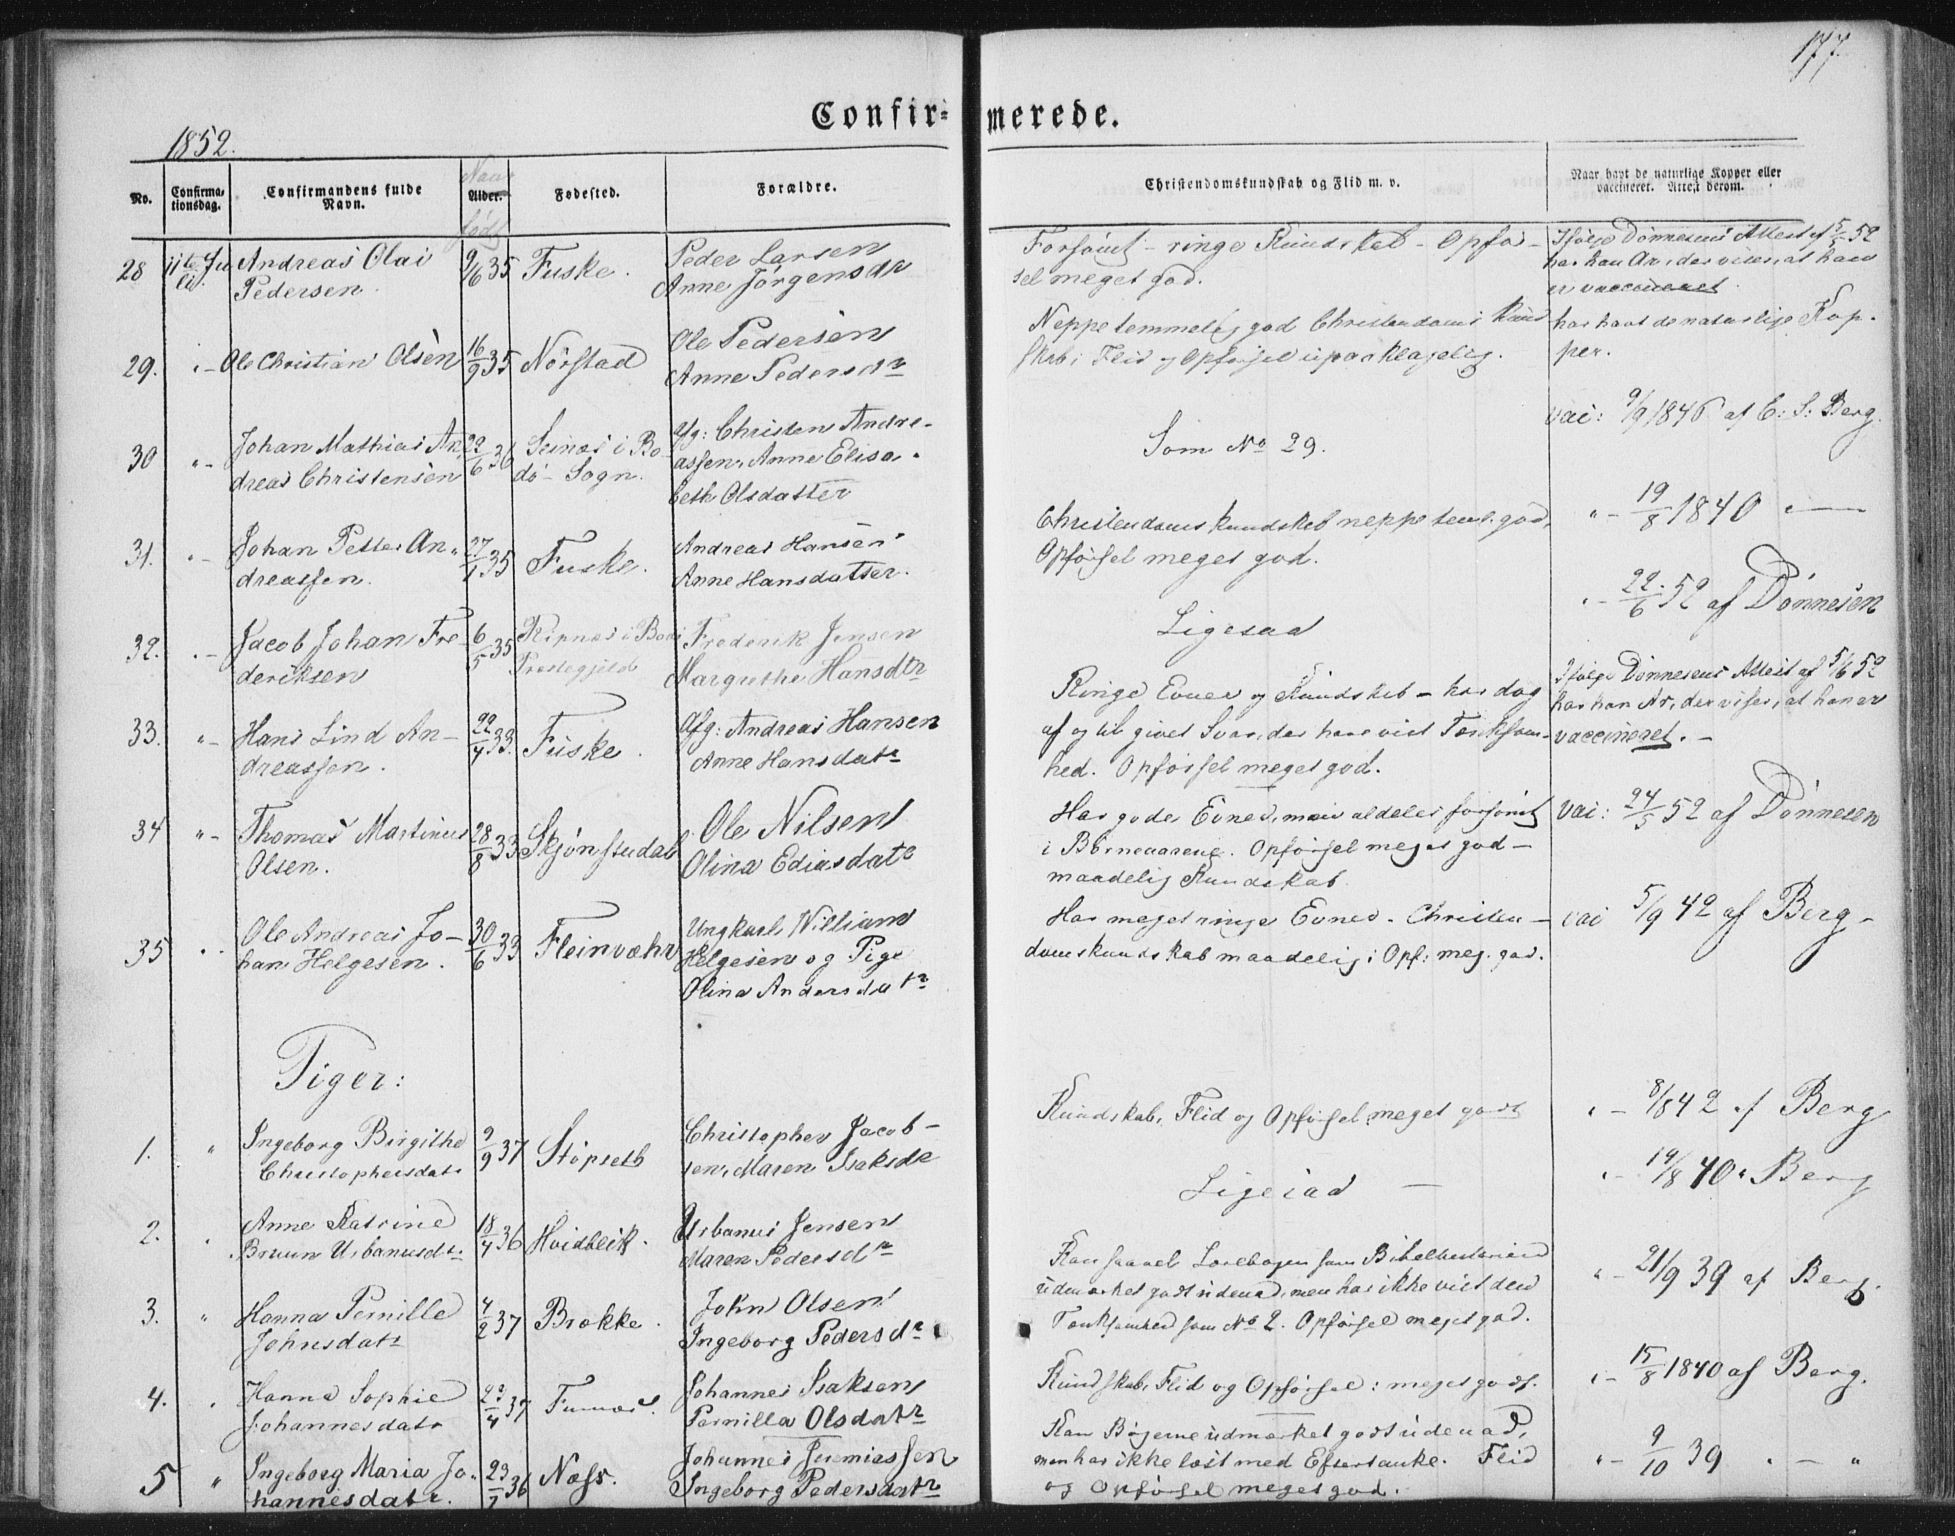 177.
Confir= merede.
1852.
No.
Confirma-
tionsdag.
Confirmandens fulde
Navn.
Naar
Alder.
født
Fødested.
Forældre.
Christendomskundskab og Flid m. v.
Naar havt de naturlige Kopper eller
vaccineret. Attest derom.
28 11te Ju
li.
Andreas Olai
Pedersen
9/6 35 Fuske.
Peder Larsen
Anne Jørgensdr
Forsömt - ringe Kundskab - Opför-
sel meget god.
Ifölge Dönnesens Attest af 5/5 52
har han Ar, der viser, at han
er vaccineret.
29. "- Ole Christian Olsen 16/9 35 Nörstad
Ole Pedersen
Anne Pedersdr
Neppe temmelig god Christendoms Kund
skab; Flid og Opförsel upaaklagelig.
har havt de naturlige Kop-
per.
30 "- Johan Mathias An
dreas Christensen
22/6 36
i Bo
dö - Sogn.
Afg: Christen Andre-
assen, Anne Elisa-
beth Olsdatter
Som No 29.
vac: 9/9 1846 af C: S: Berg.
31. "- Johan Petter An-
dreassen.
27/1 35 Fuske.
Andreas Hansen
Anne Hansdatter.
Christendomskundskab neppe teml. god,
Opförsel meget god.
"- 19/8 1840 "-
32. "- Jacob Johan Fre
deriksen
6/5 35
Præstegjeld
Frederik Jensen
Margrethe Hansdtr
Ligesaa
"- 22/6 52 af Dönnesen
33. "- Hans Lind An-
dreassen.
22/4 33. Fuske.
Afg: Andreas Hansen
Anne Hansdatr
Ringe Evner og Kundskab - har dog
af og til givet Svar, der have vist Tænksom-
hed. Opförsel meget god.
Ifölge Dönnesens Attest af 5/6 52
har han Ar, der viser, at han er
vaccineret. -
34 "- Thomas Martinus
Olsen.
28/8 33 Skjönstudal
Ole Nilsen
Olina Ediasdatr
Har gode Evner, men aldeles forsömt
i Börneaarene. Opförsel meget god -
maadelig Kundskab.
vac: 24/5 52 af Dönnesen
35 "- Ole Andreas Jo-
han Helgesen.
30/6 33 Fleinvæhr
Ungkarl William
Helgesen og Pige
Olina Andersdatr
Har meget ringe Evner. Christen-
domskundskab maadelig; Opf: meg. god.
vac 5/9 42 af Berg -
Piger:
1. " Ingeborg Birgithe
Christophersdatr
9/9 37 Stöpseth
Christopher Jacob-
sen, Maren Isaksdr
Kundskab, Flid og Opförsel meget godt
"- 8/8 42 af Berg
2. " Anne Katrine
Bruun Urbanusdtr
18/4 36 Hvidblik.
Urbanus Jensen
Maren Pedersdr
Ligesaa -
"- 19/8 40 " Berg
3. " Hanna Pernille
Johnsdatr
4/2 37 Brække.
John Olsen
Ingeborg Pedersdr
Kan saavel Lærebogen som Bibelhistorien
udmærket godt udenad, men har ikke vist den
Tænksomhed som No 2. Opförsel meget god.
"- 21/9 39 af Berg.
4. " Hanna Sophie
Johannesdatr
22/4 37
Johannes Isaksen
Pernilla Olsdatr
Kundskab, Flid og Opförsel: meget godt.
"- 15/8 1840 af Berg.
5 " Ingeborg Maria Jo-
hannesdatr.
23/7 36 Næss.
Johannes Jeremiassen
Ingeborg Pedersdatr
Kan Bögerne udmærket godt udenad,
men har ikke læst med Eftertanke. Flid
og Opförsel meget god.
"- 9/10 39 " - "